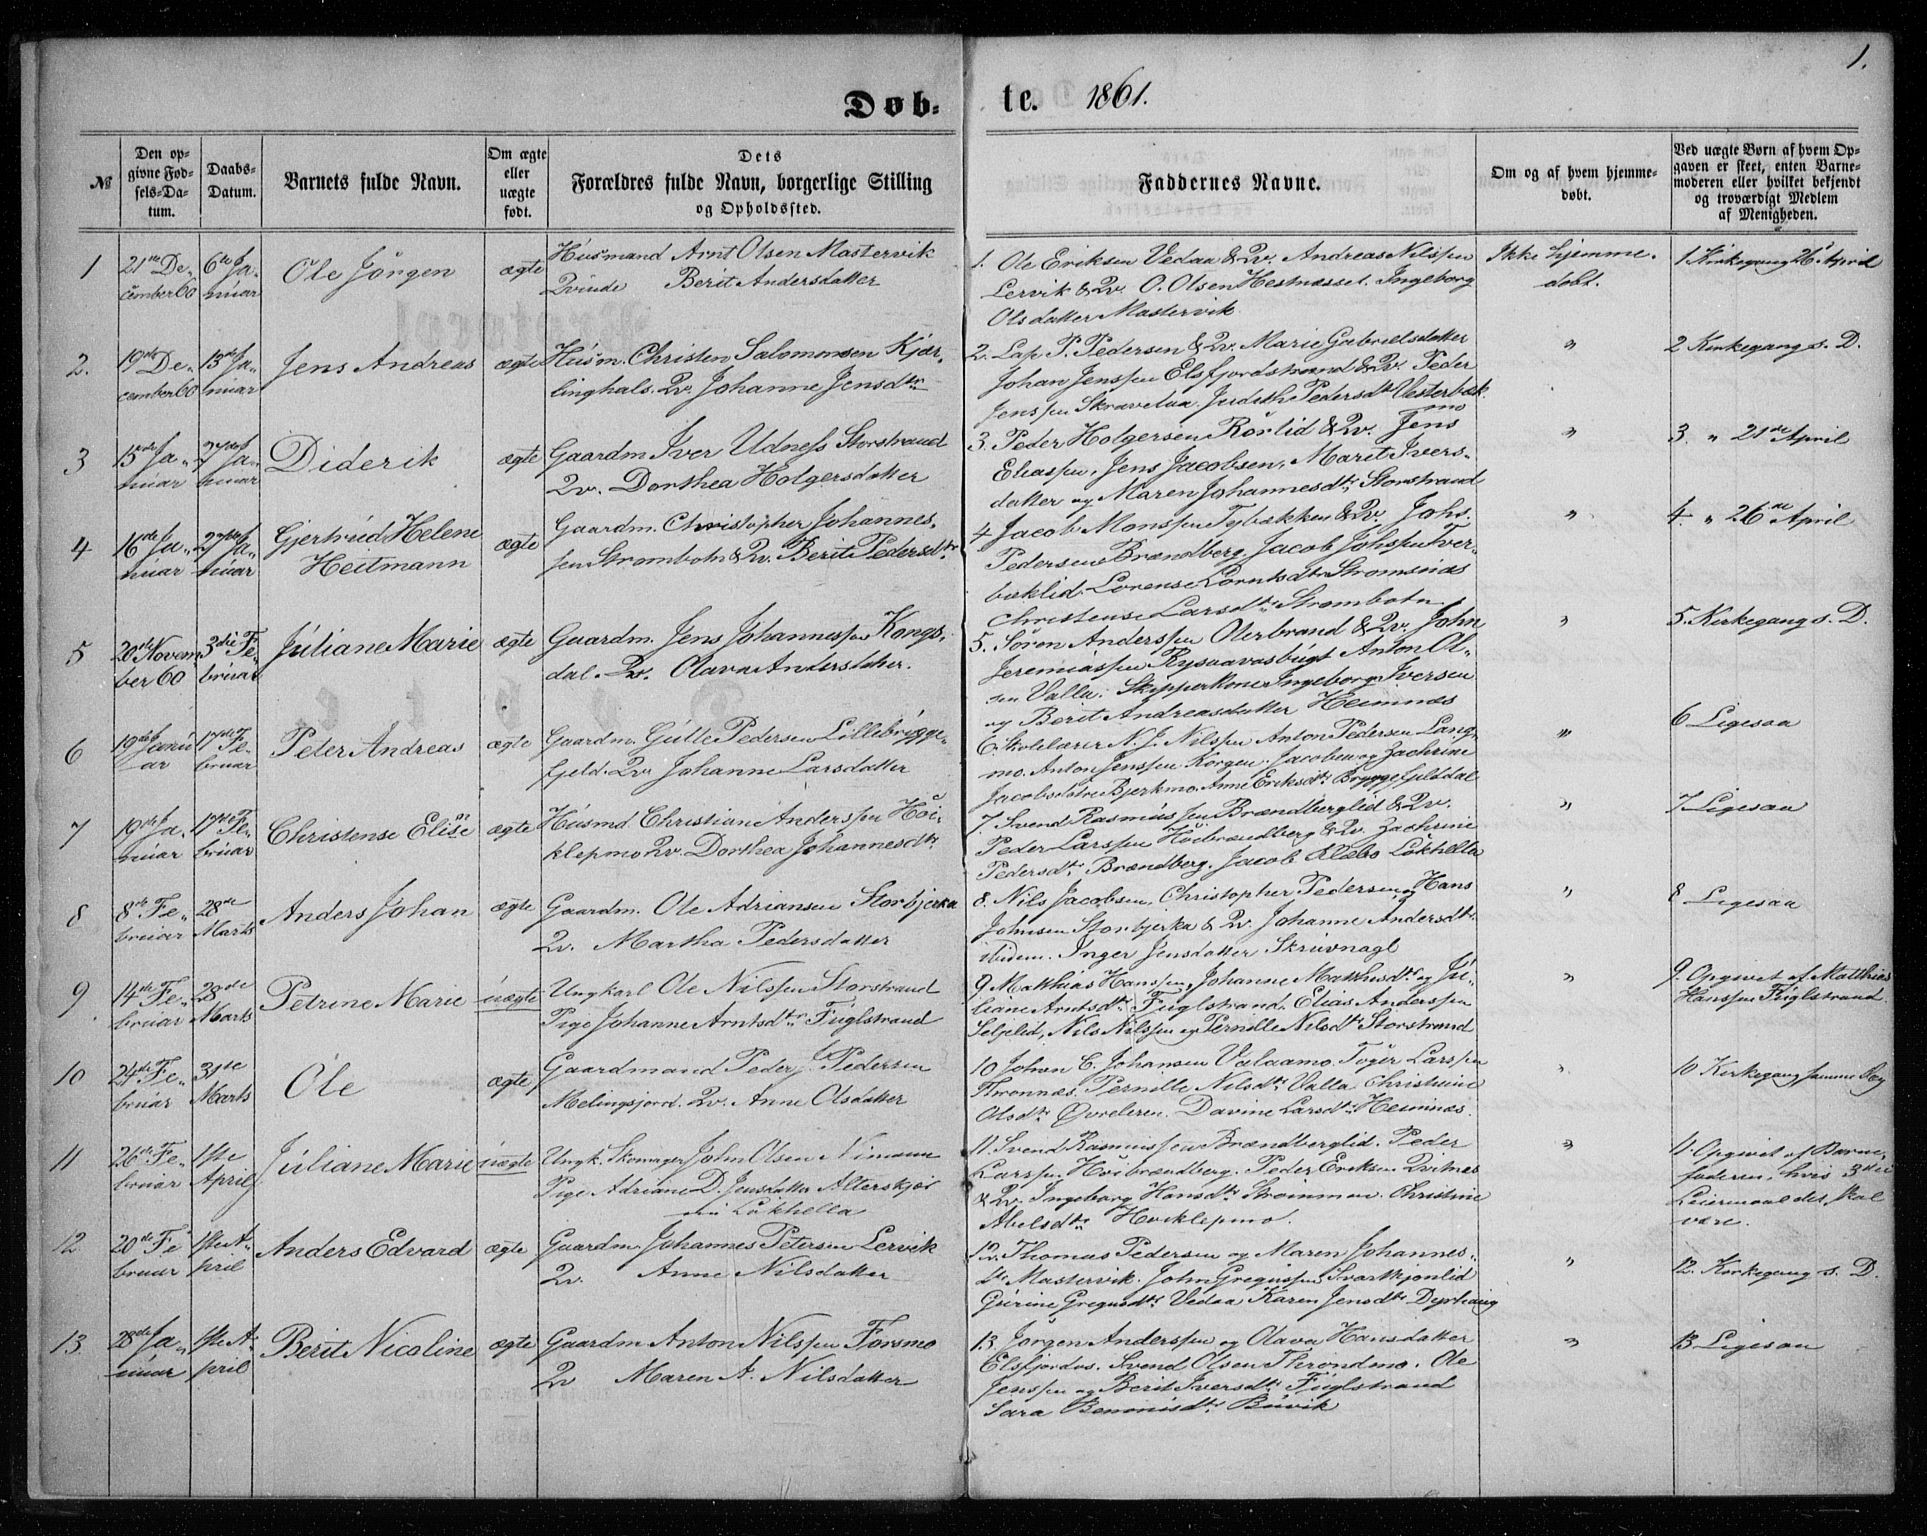 1.
Døb-
te. 1861.
№
Den op-
givne Fød-
sels-Da-
tum.
Daabs-
Datum.
Barnets fulde Navn.
Om ægte
eller
uægte
født.
Dets
Forældres fulde Navn, borgerlige Stilling
og Opholdssted.
Faddernes Navne.
Om og af hvem hjemme-
døbt.
Ved uægte Børn af hvem Op-
gaven er skeet, enten Barne-
moderen eller hvilket bekjendt
og troværdigt Medlem
af Menigheden.
1
21de De-
cember 60
6te Ja-
nuar
Ole Jörgen
ægte
Husmand Arnt Olsen Mastervik
Qvinde Berit Andersdatter
1. Ole Eriksen Vedaa & Qv. Andreas Nilssen
Lervik & Qv. O. Olsen Hestnæsset. Ingeborg
Olsdatter Mastervik
Ikke hjemme-
døbt.
1 Kirkegang 26 April
2.
19de De-
cember 60
13de Ja-
nuar
Jens Andreas
ægte
Husm. Christen Salomonsen Kjær-
linghals. Qv. Johanne Jensdtr
2. Lap P. Pedersen & Qv. Marie Gabrielsdatter
Johan Jenssen Elsfjordstrand & Qv. Peder
Jenssen Skravelaa. Judith Pedersdt Vesterbæk
"
2 Kirkegang s. D.
3
15de Ja-
nuar
27de Ja-
nuar
Diderik
ægte
Gaardm Iver Udness Storstrand
Qv. Dorthea Holgersdatter
3. Peder Holgersen Rörlid & Qv. Jens
Eliassen, Jens Jacobsen, Marit Ivers-
datter og Maren Johannesdtr Storstrand
"
3. " 21de April
4
16de Ja-
nuar
27de Ja-
nuar
Gjertrud Helene
Heitmann
ægte
Gaardm. Christopher Johannes-
sen Strømbotn & Qv. Berit Pedersdtr
4 Jacob Monssen Tybækken & Qv. Johs.
Pedersen Brændberg, Jacob Johssen Tver-
bæklid. Lorense Lorntsdtr Strømsnæs
Christense Larsdtr Strømbotn
"
4. " 26de April
5
20de Novem-
ber 60
3die Fe-
bruar
Juliane Marie
ægte
Gaardm. Jens Johannessen Kongs-
dal. Qv. Olava Andersdatter.
5. Søren Anderssen Oterbrand & Qv. John
Jeremiassen Rysaavasbugt Anton Ol-
sen Valla. Skipperkone Ingeborg Iversen
og Berit Andreasdatter Hemnæs
"
5. Kirkegang s. D.
6
19de Janu-
ar
17de Fe-
bruar
Peter Andreas
ægte
Gaardm. Gutte Pedersen Lillebrygge-
fjeld. Qv. Johanne Larsdatter
6. Skolelærer N. J. Nilssen Anton Pedersen Lang-
mo. Anton Jenssen Korgen. Jacobea og Zachrine
Jacobsdatter Bjerkmo. Anne Eriksdtr Bryggefjelddal
"
6 Ligesaa
7
19de Ja-
nuar
17de Fe-
bruar
Christense Elise
ægte
Husmd. Christian Anderssen Höi-
klepmo Qv. Dorthea Johannesdtr.
7. Svend Rasmussen Brændberglid & Qv.
Peder Larssen Höibrændberg & Qv. Zachrine
Pedersdtr Brændberg. Jacob Klæbo Lökhella
"
7 Ligesaa
8
8de Fe-
bruar
28de
Marts
Anders Johan
ægte
Gaardm. Ole Adriansen Storbjerka
Qv. Martha Pedersdatter
8. Nils Jacobsen, Christopher Pedersen, og Hans
Johnsen Storbjerka & Qv. Johanne Andersdtr
ibidem. Inger Jensdatter Skruvnagl
"
8 Ligesaa
9
14de Fe-
bruar
28de
Marts
Petrine Marie
uægte
Ungkarl Ole Nilssen Storstrand
Pige Johanne Arntsdtr Fuglstrand
9 Matthias Hanssen, Johanne Matthisdtr og Ju-
liane Arntsdtr Fuglstrand. Elias Anderssen
Seljelid, Nils Nilssen og Pernille Nilsdtr Storstrand
"
9. Opgivet af Matthias
Hanssen Fuglstrand.
10
24de Fe-
bruar
31te
Marts
Ole
ægte
Gaardmand Peder J. Pedersen
Melingsjord. Qv. Anne Olsdatter
10 Johan C. Johansen Valaamo. Töger Larssen
Thronnæs. Pernille Nilsdtr Valla Christine
Olsdtr Øvreleren. Davine Larsdtr Hemnæs.
"
10 Kirkegang samme Dag
11
26de Fe-
bruar
1ste
April
Juliane Marie
uægte
Ungk. Skomager John Olsen Nimoen
Pige Adriane D. Jensdatter Alterskjær
nu Lökhella
11. Svend Rasmussen Brændberglid. Peder
Larssen Höibrændberg. Peder Eriksen Qvitnæs
& Qv. Ingeborg Hansdtr Strømmen. Christine
Abelsdtr Hoiklepmo.
"
11. Opgivet af Barne-
faderen, hvis 3die
Leiermaal det skal
være.
12
20de Fe-
bruar
1ste A-
pril
Anders Edvard
ægte
Gaardm. Johannes Petersen Lervik
Qv. Anne Nilsdatter
12. Thomas Pedersen og Maren Johannes-
dtr Mastervik. John Gregussen Svartkjønlid
Gurine Gregusdtr Vedaa Karen Jensdtr Dyrhaug
"
12. Kirkegang s. D.
13
28de Ja-
nuar
1ste A-
pril
Berit Nicoline
ægte
Gaardm Anton Nilssen Forsmo
Qv Maren A. Nilsdatter
13 Jørgen Anderssen og Olava Hansdatter
Elsfjordos. Svend Olsen Throndmo. Ole
Jenssen og Berit Iversdtr Fuglstrand
Sara Benonisdtr Buvik
"
13 Ligesaa